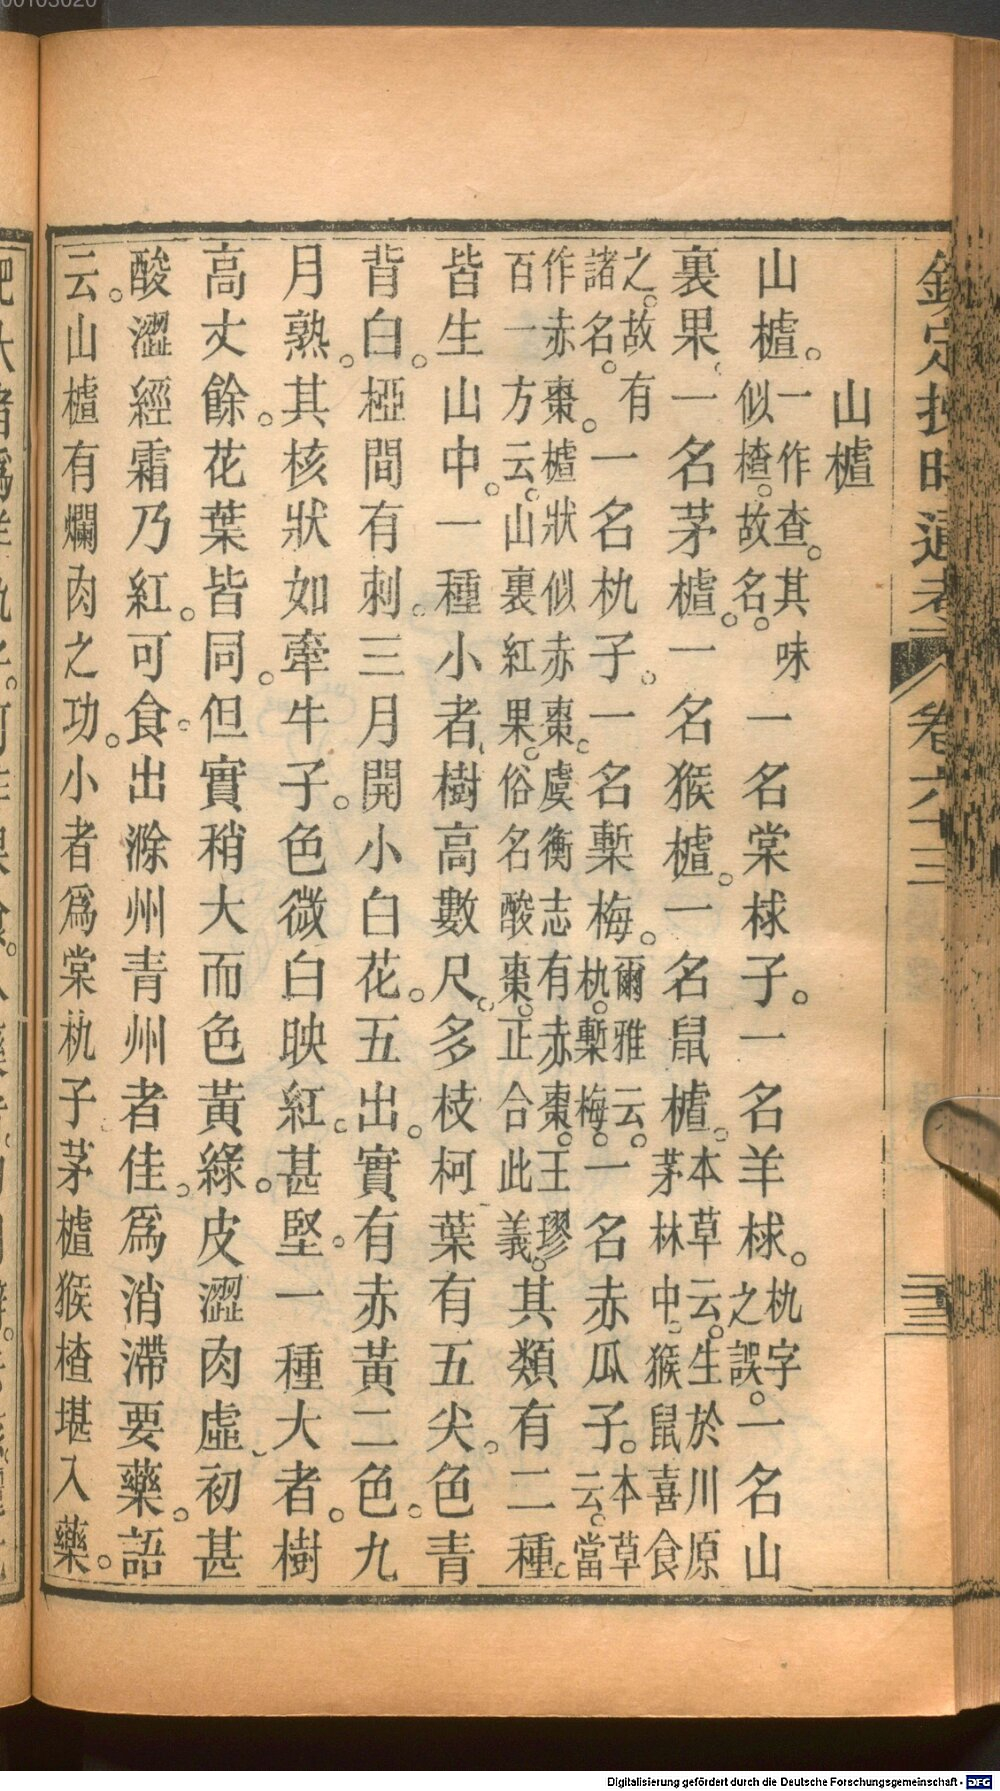 欽定授時通考 卷六十三
山樝
山樝。一作查。其味似楂。故名。一名棠梂子。一名羊梂。朹字之誤。一名山
裏果、一名茅樝。一名猴樝。一名鼠樝。本草云。生於川原茅林中。猴鼠喜食
之。故有諸名。一名朹子。一名檕梅。爾雅云。朹。檕梅。一名赤瓜子。本草云。當
作赤棗。樝狀似赤棗。虞衡志有赤棗。王璆百一方云。山裏紅果。俗名酸棗。正合此義。其類有二種。
皆生山中。一種小者、樹高數尺。多枝柯葉有五尖。色青
背白。椏間有刺。三月開小白花。五出。實有赤黃二色。九
月熟。其核狀如牽牛子。色微白映紅。甚堅。一種大者。樹
高丈餘。花葉皆同。但實稍大而色黃綠。皮澀肉虛、初甚
酸澀經霜乃紅。可食。出滁州青州者佳。爲消滯要藥。語
云。山樝有爛肉之功。小者爲棠朹子茅樝猴楂堪入藥。
Digitalisierung gefördert durch die Deutsche Forschungsgemeinschaft - DFG